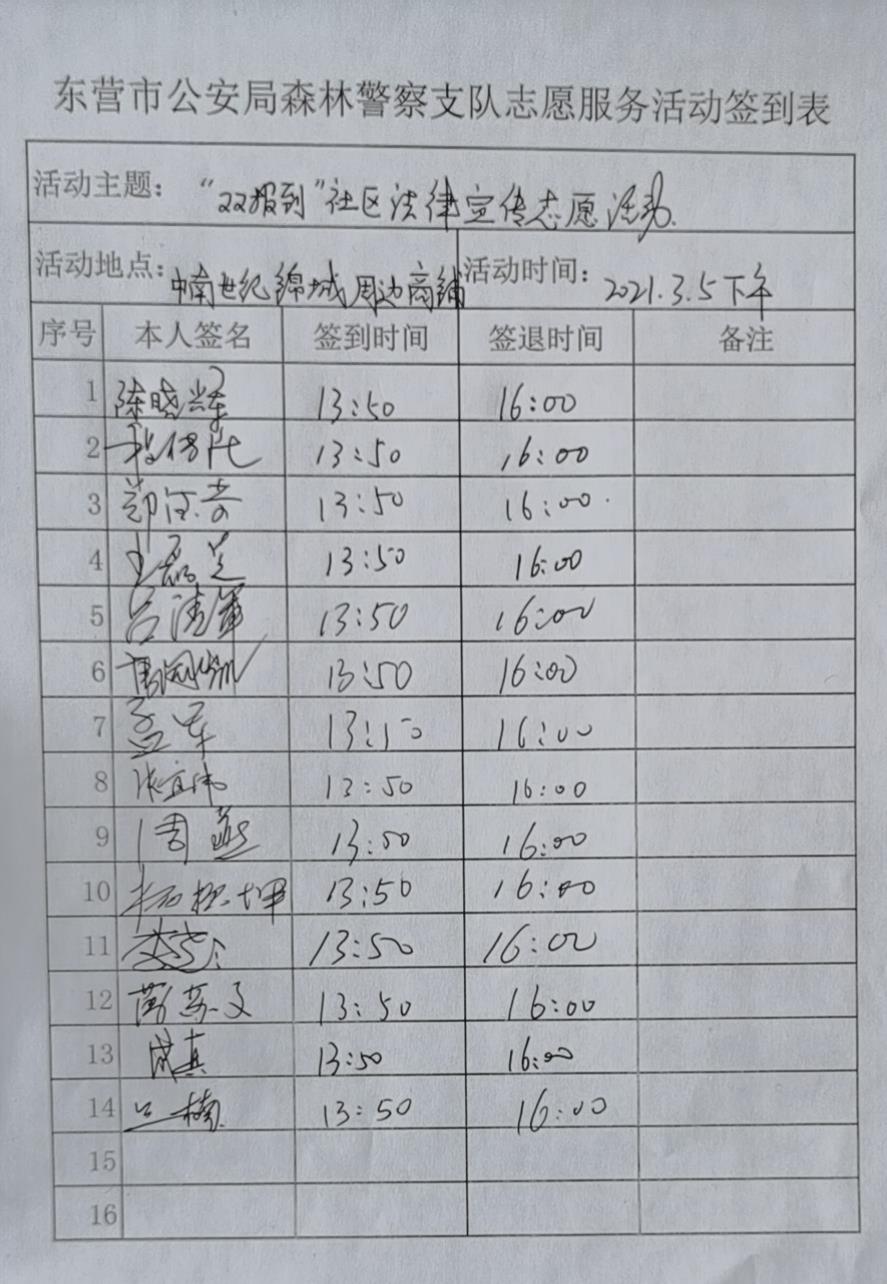 东营市公安局森林警察支队志愿服务活动签到表
活动主题： “双报到”社区法律宣传志愿活动.
活动地点： 中南世纪锦城周边商铺 活动时间： 2021.3.5下午
序号 本人签名 签到时间 签退时间 备注
1 陈晓 13:50 16:00
2 13:50 16:00
3 13:50 16:00
4 13:50 16:00
5 吕清军 13:50 16:00
6 13:50 16:00
7 孟军 13:50 16:00
8 张宜伟 13:50 16:00
9 周燕 13:50 16:00
10 坤 13:50 16:00
11 13:50 16:00
12 13:50 16:00
13 成真 13:50 16:00
14 兰楠 13:50 16:00
15
16